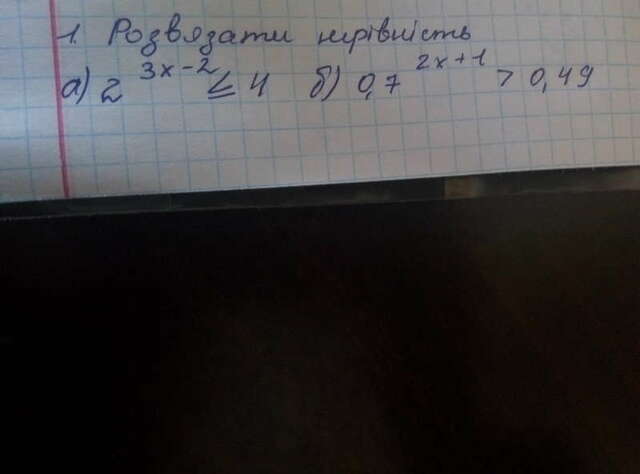 1. Розвязати нерівність
а) 2^{3x-2} ≤ 4 б) 0,7^{2x+1} > 0,49